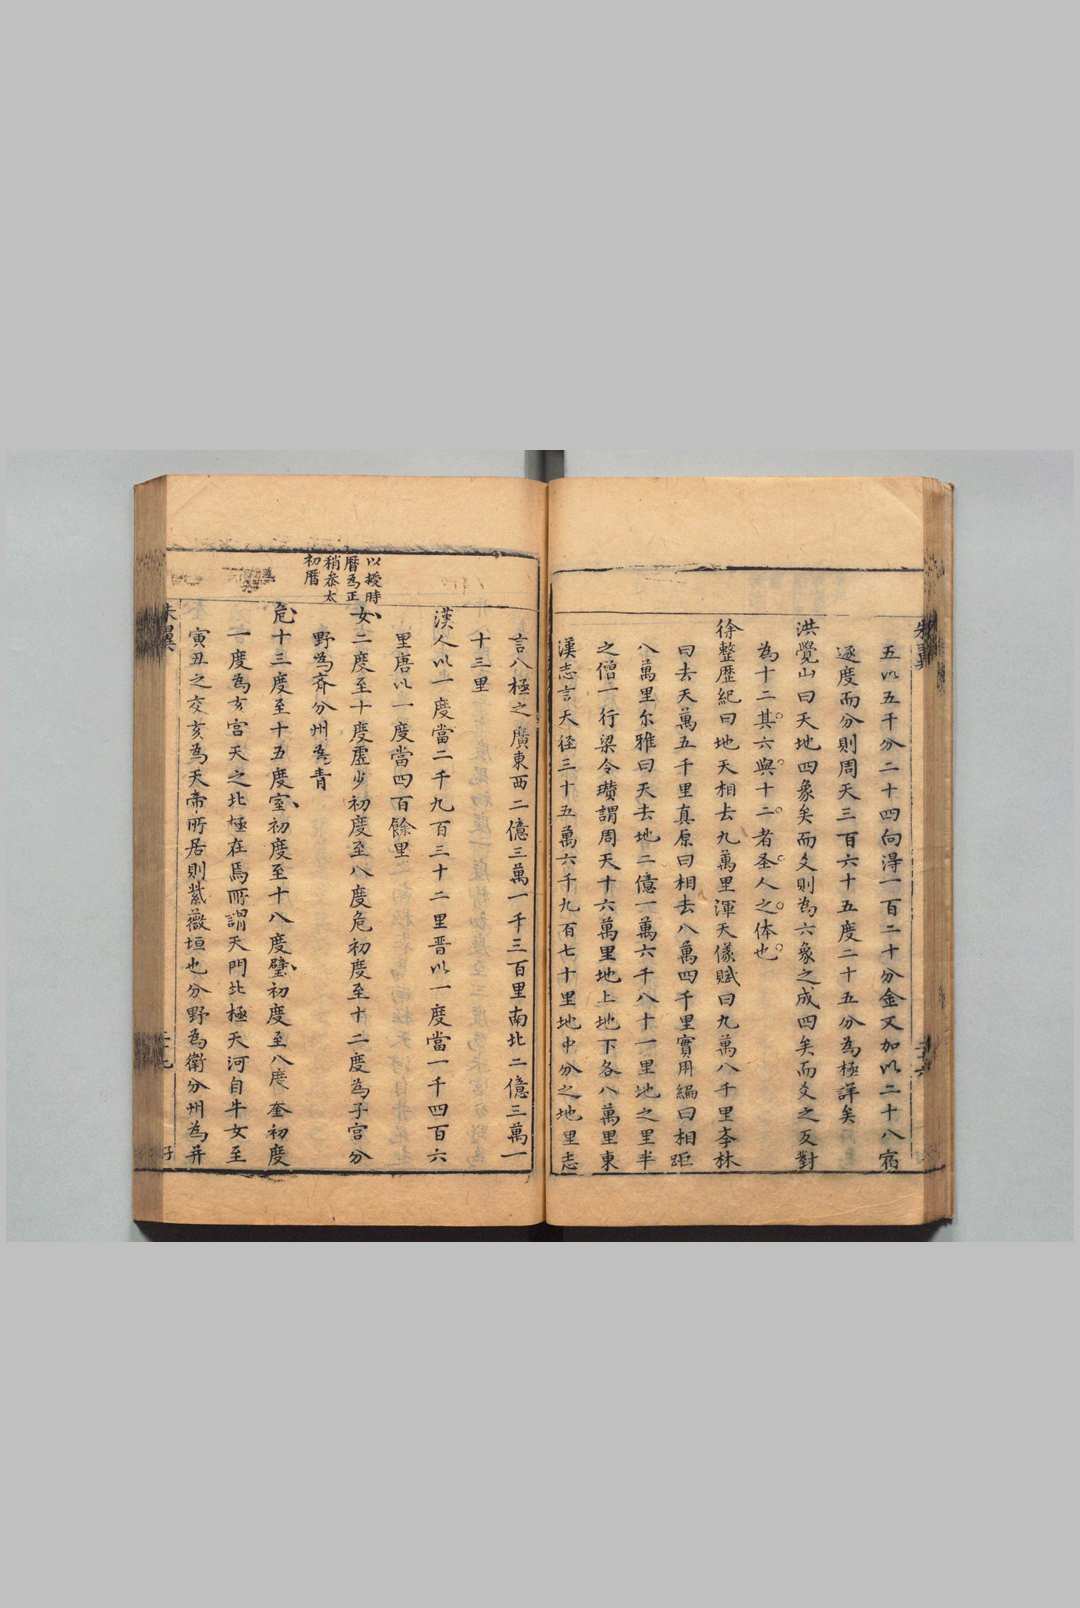 五以五千分二十四向得一百二十分金又加以二十八宿
逐度而分則周天三百六十五度二十五分為極詳矣
洪覺山曰天地四象矣而爻則為六象之成四矣而爻之反對
為十二其六與十二者圣人之体也
徐整歷紀曰地天相去九萬里渾天儀賦曰九萬八千里李林
曰去天萬五千里真原曰相去八萬四千里實用編曰相距
八萬里尔雅曰天去地二億一萬六千八十一里地之里半
之僧一行梁令瓚謂周天十六萬里地上地下各八萬里東
漢志言天径三十五萬六千九百七十里地中分之地里志
言八極之廣東西二億三萬一千三百里南北二億三萬一
十三里
漢人以一度當二千九百三十二里晋以一度當一千四百六
里唐以一度當四百餘里
以授時
曆為正
稍叅太
初曆
女二度至十度虛少初度至八度危初度至十二度為子宮分
野為齐分州為青
危十三度至十五度室初度至十八度壁初度至八度奎初度
一度為亥宮天之北極在焉所謂天門北極天河自牛女至
寅丑之交亥為天帝所居則紫薇垣也分野為衛分州為并
朱翼